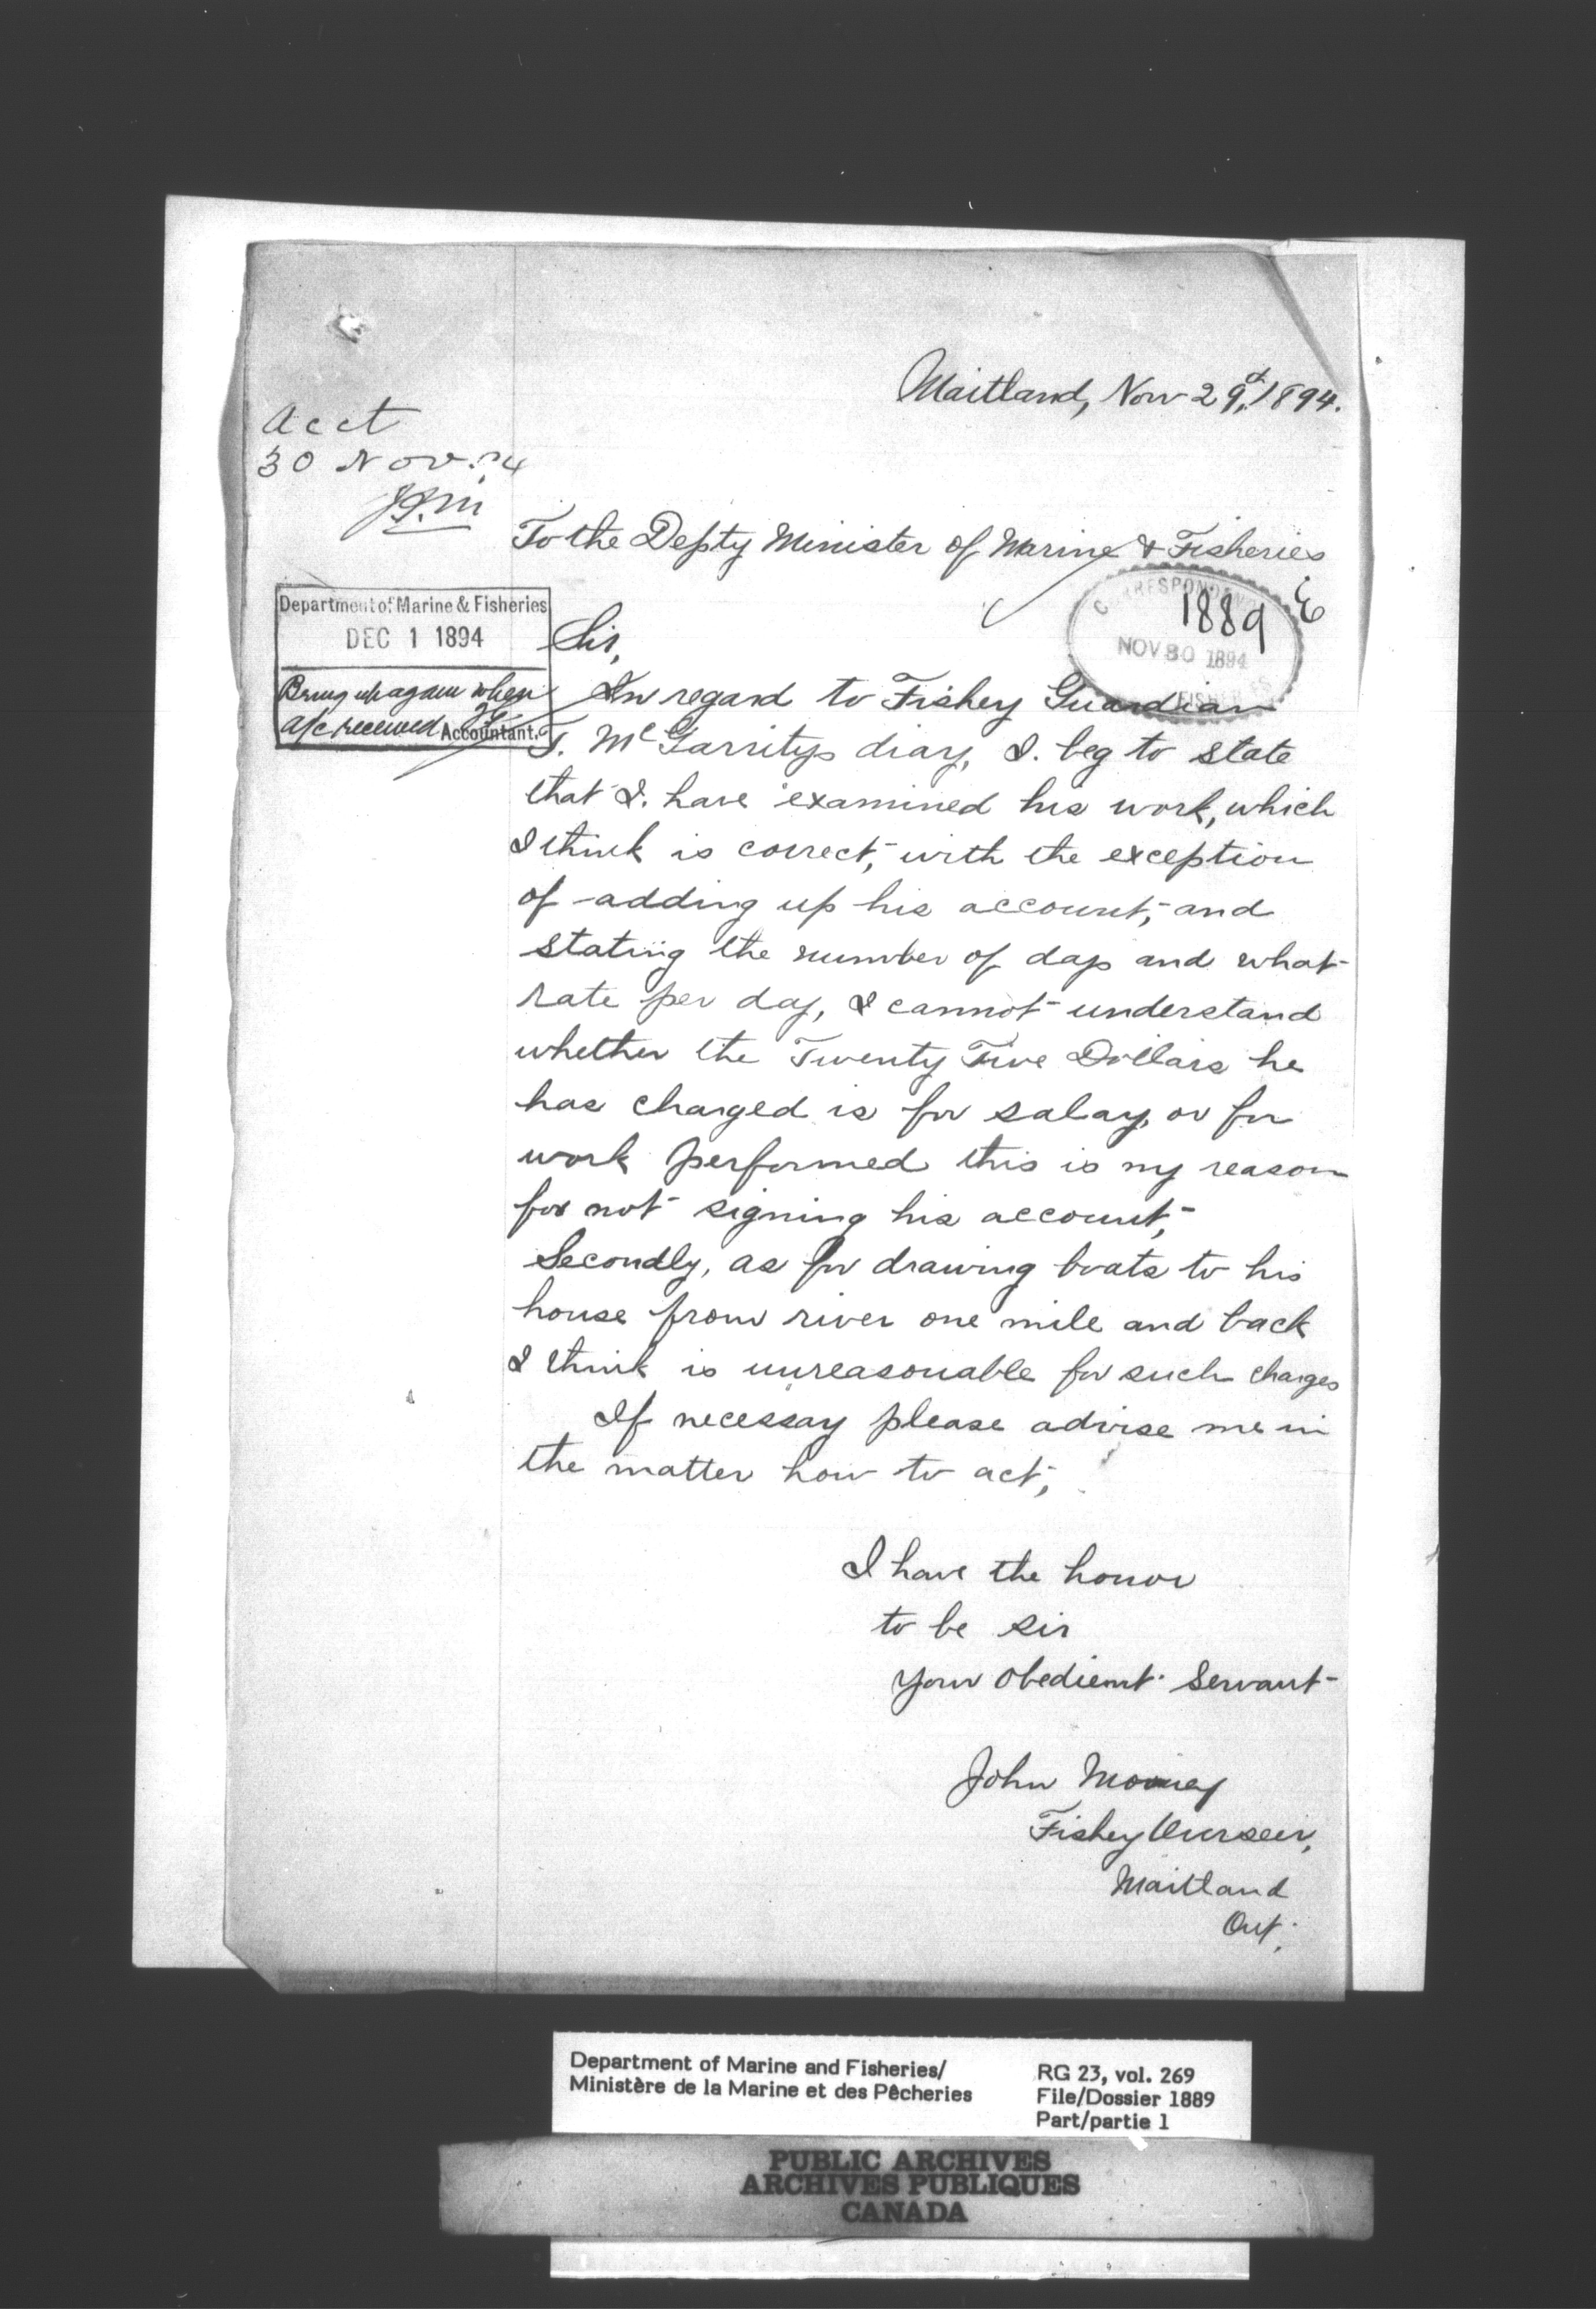 Maitland, Nov 29th, 1894.
Acct
30 Nov. 94
To the Depty Minister of Marine & Fisheries
CORRESPONDENCE
1889
NOV 30 1894
FISHERIES
Department of Marine & Fisheries
DEC 1 1894
Bring up again when
a/c received
Accountant.
Sir,
In regard to Fishey Guardian
T. McGarritys diary, I. beg to state
that I. have examined his work, which
I think is correct, with the exception
of adding up his account, and
stating the number of days and what
rate per day, I cannot understand
whether the Twenty Five Dollars he
has charged is for salary, or for
work performed this is my reason
for not signing his account,
Secondly, as for drawing boats to his
house from river one mile and back
I think is unreasonable for such charges
If necessay please advise me in
the matter how to act,
I have the honor
to be sir
your obedient Servant
John Mooney
Fishey Overseer,
Maitland
Ont.
Department of Marine and Fisheries/
Ministère de la Marine et des Pêcheries
RG 23, vol. 269
File/Dossier 1889
Part/partie 1
PUBLIC ARCHIVES
ARCHIVES PUBLIQUES
CANADA